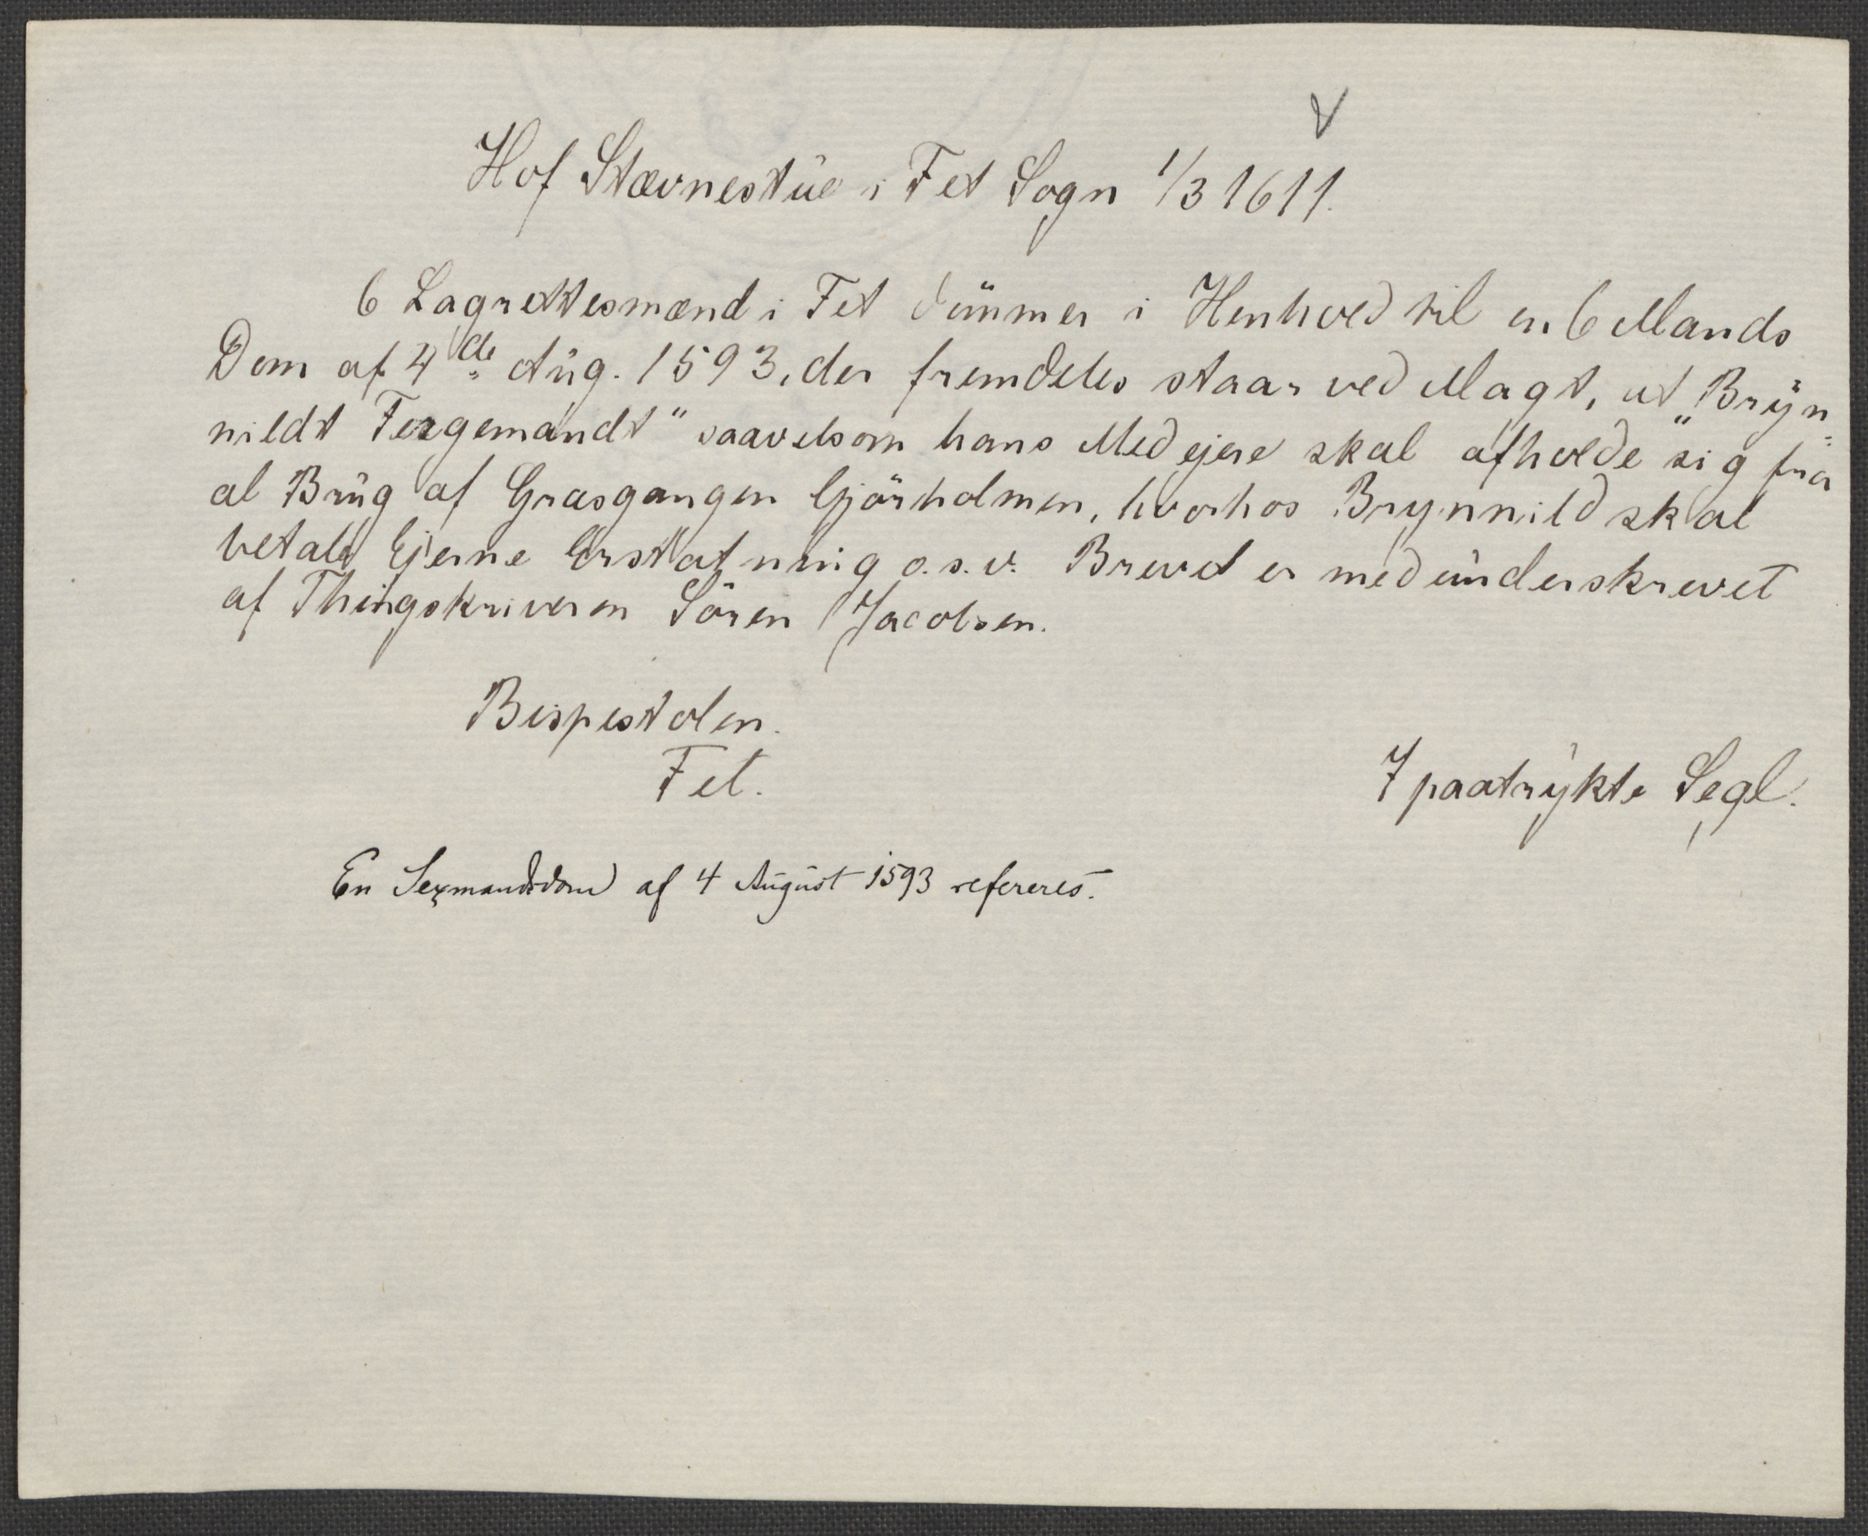 V
Hof Stævnestüe i Fet Sogn 1/3 1611.
6 Lagrettesmænd i Fet dümmer i Henhold til en 6 Mands
Dom af 4de Aüg. 1593, der fremdeles staar ved Magt, at „Brÿn-
nildt Fergemandt" saavelsom hans Medejere skal afholde sig fra
al Brüg af Græsgangen Gjörholmen, hvorhos Brynnild skal
betale Ejerne Erstatning o.s.v. Brevet er medünderskrevet
af Thingskriveren Sören Jacobsen.
Bispestolen.
Fet.
7 paatrykte Segl.
En Sexmandsdom af 4 August 1593 refereres.